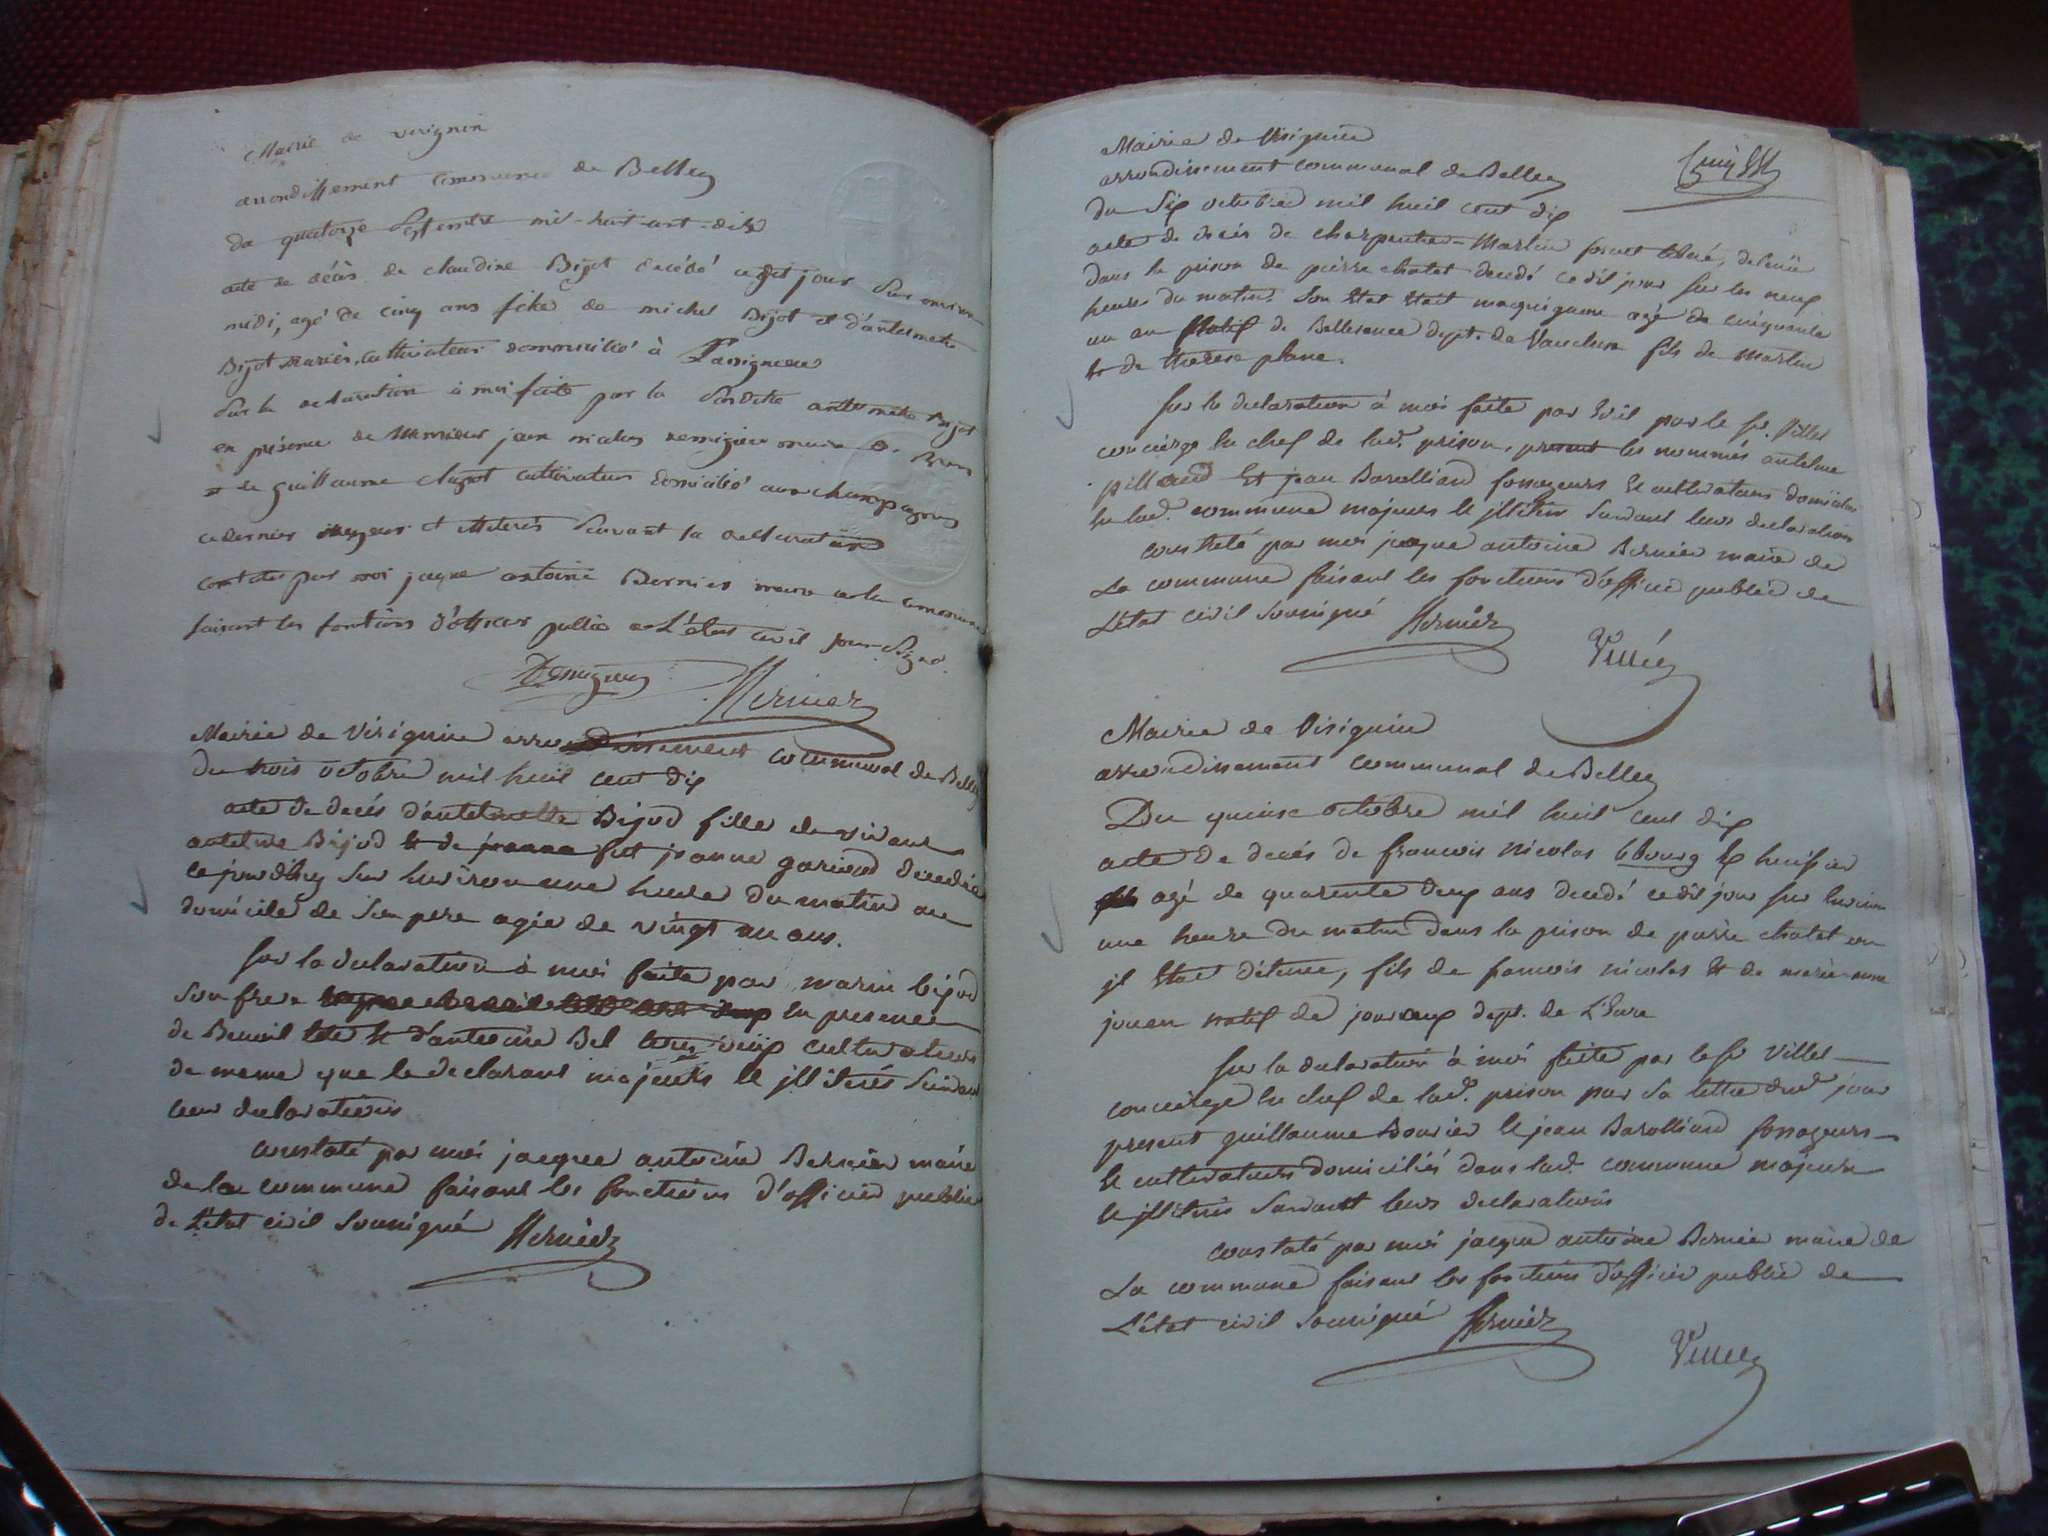 Mairie de virignin
arrondissement communal de Belley
du quatorze septembre mil-huit-cent-dix
acte de décès de claudine Bijot décédé cedit jour sur environ
midi, agé de cinq ans fille de michel Bijot et d'antelmette
Bijot mariés, cultivateurs dommicilié à
sur la declaration à moi faite par la susdite antelmette Bijot
en présence de Monsieur jean nicolas maire de
et de guillaume clugot cultivateur domicilié aux champagnes
ce dernier majeur et illiterés suivant sa declaration
constaté par moi jaque antoine Bernier maire de la commune
faisant les fonctions d'officier public de L'état civil sous-signé
Bernier
Mairie de Virignin arrondissement communal de Belley
du trois octobre mil huit cent dix
acte de decés d'antelmette Bijod fille de vivant
antelme Bijod & de fut jeanne gariod decedée
ce jourdhuy sur environ une heure du matin au
domicile de son pere agée de vingt un ans.
sur la declaration à moi faite par marin bijod
son frere en presence
de Benoit & d'antoine Bel cultivateurs
de meme que le declarant majeurs & jlliterés suivant
leur declarations
constaté par moi jacque antoine Bernier maire
de la commune faisant les fonctions d'officier public
de L'etat civil soussigné Bernier
Mairie de Virignin
arrondissement communal de Belley
du six octobre mil huit cent dix
acte de décés de charpentier Martin forcat libéré, detenu
dans la prison de pierre chatel decedé cedit jour sur les neuf
heures du matin. Son Etat etait maquignon agé de cinquante
un an natif de Bellesence dept. de Vaucluse fils de martin
& de therese plane.
sur la declaration à moi faite par Ecrit par le sr. Villet
concierge en chef de lad. prison, present les nommés antelme
pillaud Et jean Barolliard fossoyeurs & cultivateurs domiciliés
en lad. commune majeurs & jlliterés suivant leurs declarations
constaté par moi jacque antoine Bernier maire de
La commune faisant les fonctions d'officier public de
L'etat civil soussigné Bernier
Villet
Mairie de Virignin
arrondissement communal de Belley
Du quinse octobre mil huit cent dix
acte de decés de francois nicolas lebourg Ex huissier
agé de quarente deux ans decedé cedit jour sur environ
une heure du matin dans la prison de pierre chatel ou
jl etait détenu, fils de francois nicolas & de marie anne
jouen natif de dept. de L'Eure
sur la declaration à moi faite par le sr Villet
concierge en chef de lad. prison par sa lettre dud jour
present guillaume Bouvier & jean Barolliard fossoyeurs
& cultivateurs domiciliés dans lad. commune majeurs
& jlliterés suivant leurs declarations
constaté par moi jacque antoine Bernier maire de
La commune faisant les fonctions d'officier public de
L'etat civil soussigné Bernier
Villet